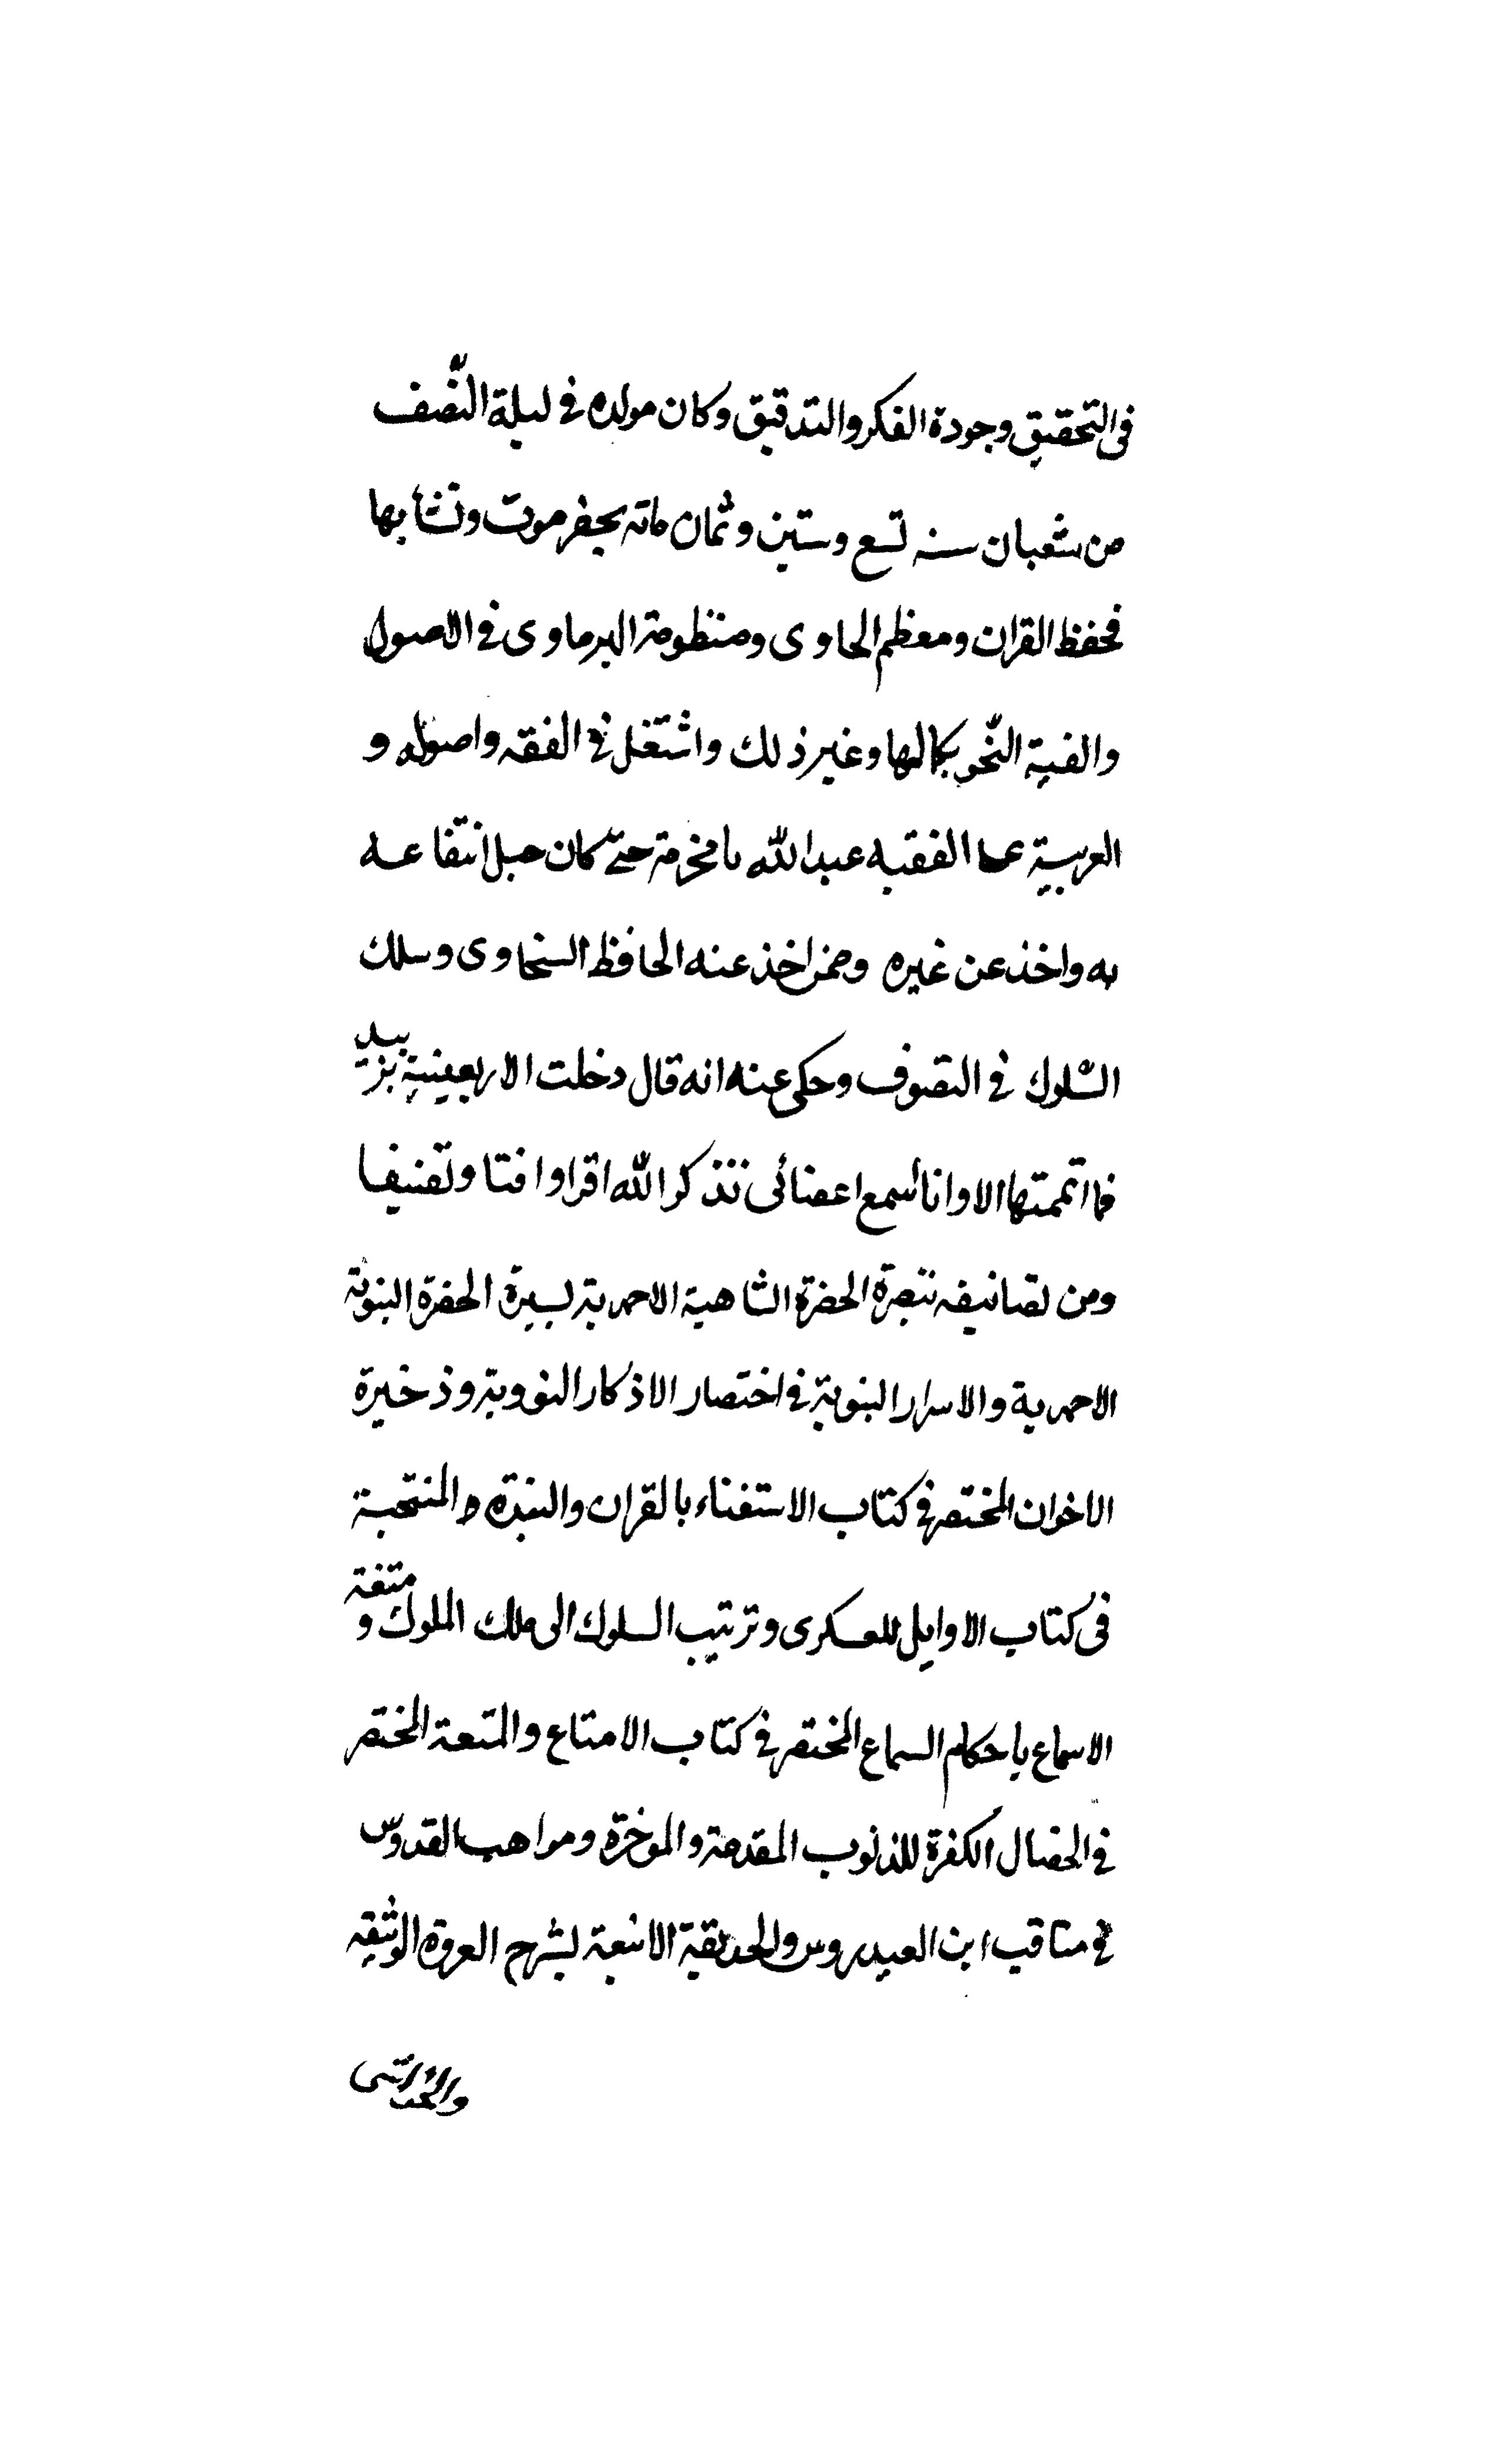 فى التحقيق وجودة الفكر والتدقيق وكان مولده في ليلة النّصف
من شعبان سنه تسع وستين وثمان مائه بحضرموت ونشا بها
فحفظ القران ومعظم الحاوى ومنظومة البرماوى في الاصول
والفية النّحو بكمالها وغير ذلك واشتغل في الفقه واصوله و
العربية على الفقيه عبدالله بامخرمة حتى كان جل انتفاعه
به واخذ عن غيره وممن اخذ عنه الحافظ السخاوى وسلك
السّلوك في التصوف وحكى عنه انه قال دخلت الاربعينية بزبيد
فما اتممتها الا وانا اسمع اعضائى تذكر الله اقرا وافتا وتصنيفا
ومن تصانيفه تبصرة الحضرة الشاهية الاحمدية بسيرة الحضرة النبوية
الاحمدية والاسرار النبوية في اختصار الاذكار النووية وذخيرة
الاخوان المختصر في كتاب الاستغناء بالقران والنبذه المنتخبة
فى كتاب الاوايل للعسكرى وترتيب السلوك الى ملك الملوك و متعة
الاسماع باحكام السماع المختصر في كتاب الامتاع والمتعة المختصر
في الخصال المكفرة للذنوب المقدمة والموخرة ومواهب القدوس
في مناقب ابن العيدروس والحديقة الانيقة بشرح العروة الوثيقه